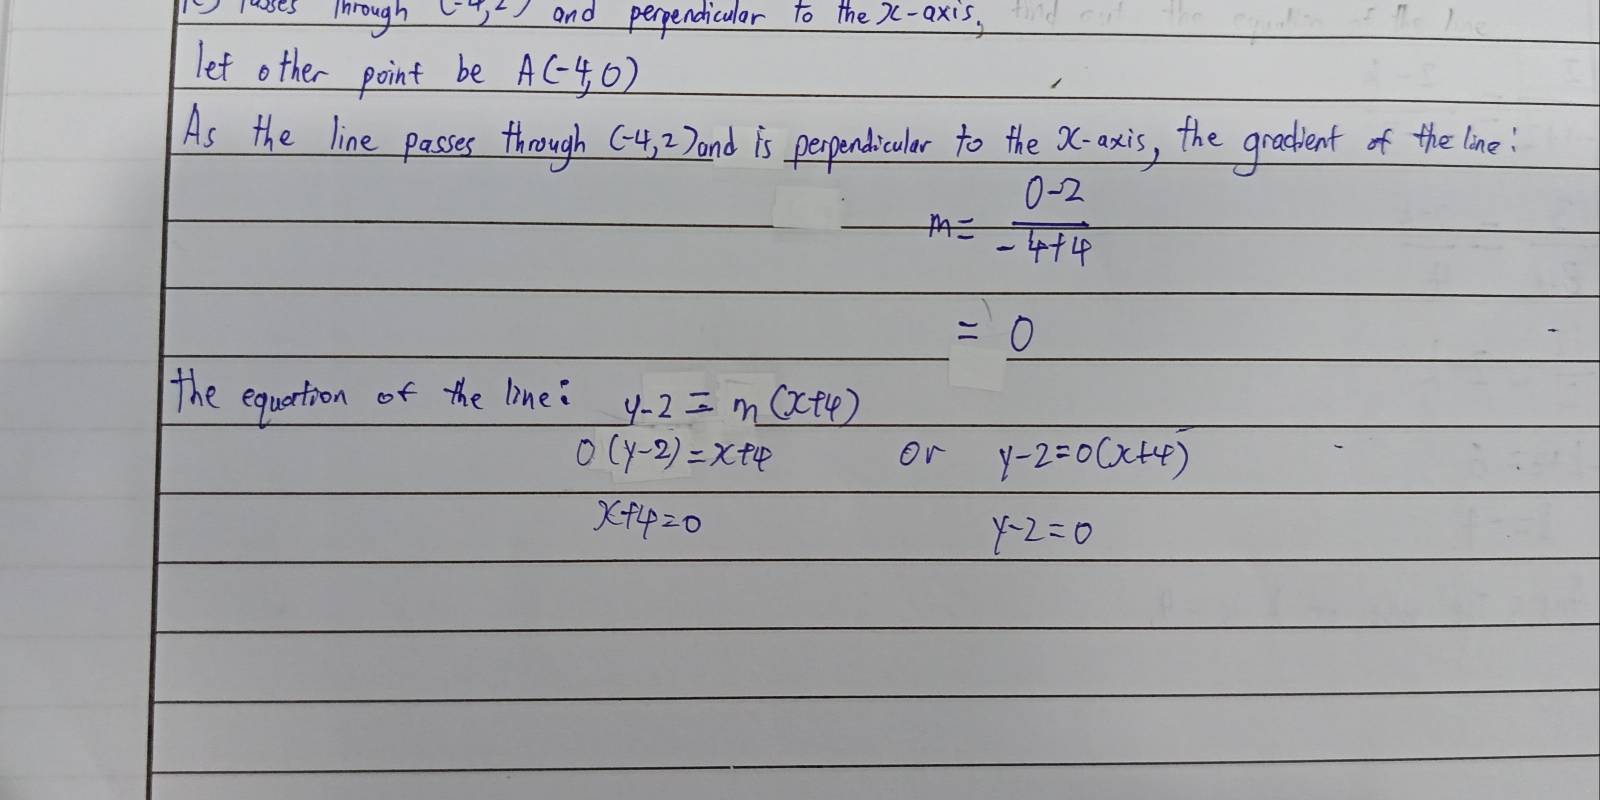 Passes through (-4,2) and perpendicular to the x-axis, find out the equation of the line
let other point be A(-4,0)
As the line passes through (-4,2) and is perpendicular to the x-axis, the gradient of the line:
m = 0-2 / -4+4
= 0
the equation of the line: y-2 = m(x+4)
0(y-2)=x+4 or y-2=0(x+4)
x+4=0 y-2=0